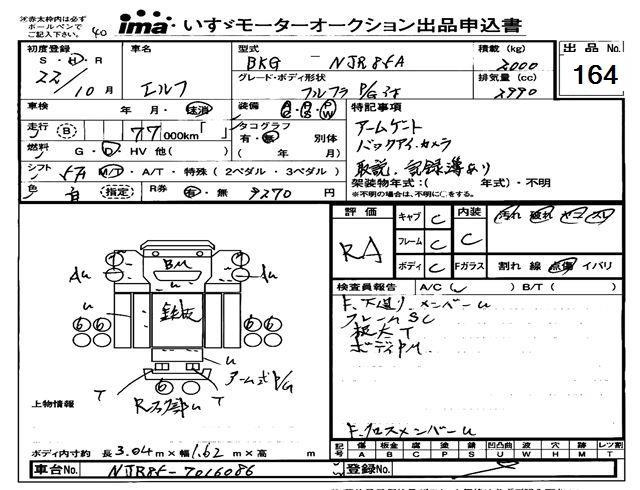 ※赤太枠内は必ず
ボールペンで
ご記入下さい。
40
ima いすゞモーターオークション出品申込書
初度登録
S・H・R
22/10月
車名
エルフ
型式
BKG - NJR85A
グレード・ボディ形状
フルフラ P/G
積載 (kg)
2000
排気量 (cc)
2990
出品 No.
164
車検
年 月・抹消
装備
AC・PS・PW
特記事項
アームゲート
バックアイ・カメラ
取説、記録簿あり
走行
B
77,000km「 」
タコグラフ
有・無 別体
( 年 月)
燃料
G・D・HV 他( )
シフト
F5 M/T・A/T・特殊 (2ペダル・3ペダル)
架装物年式:( 年式)・不明
※不明の場合は、不明に○をする。
色
白 指定
R券
有・無 9270 円
評価
RA
キャブ C
フレーム C
ボディ C
内装 C
汚れ 破れ ヤニ スリ
Fガラス
割れ 線 点傷 イバリ
検査員報告 A/C( ) B/T( )
F.下廻り、メンバーU
フレームSC
根太T
ボディPM
F.クロスメンバーU
BM
AU
AU
U
U
鉄板
6 6
6 6
U
T
T
6
アーム式P/G
上物情報
ボディ内寸約 長 3.04 m × 幅 1.62 m × 高 m
記号
傷 板金 腐 塗 錆 凹凸曲 波 穴 外 レツ割
A B C P S U W H M T
車台No.
NJR85-7016086
登録No.